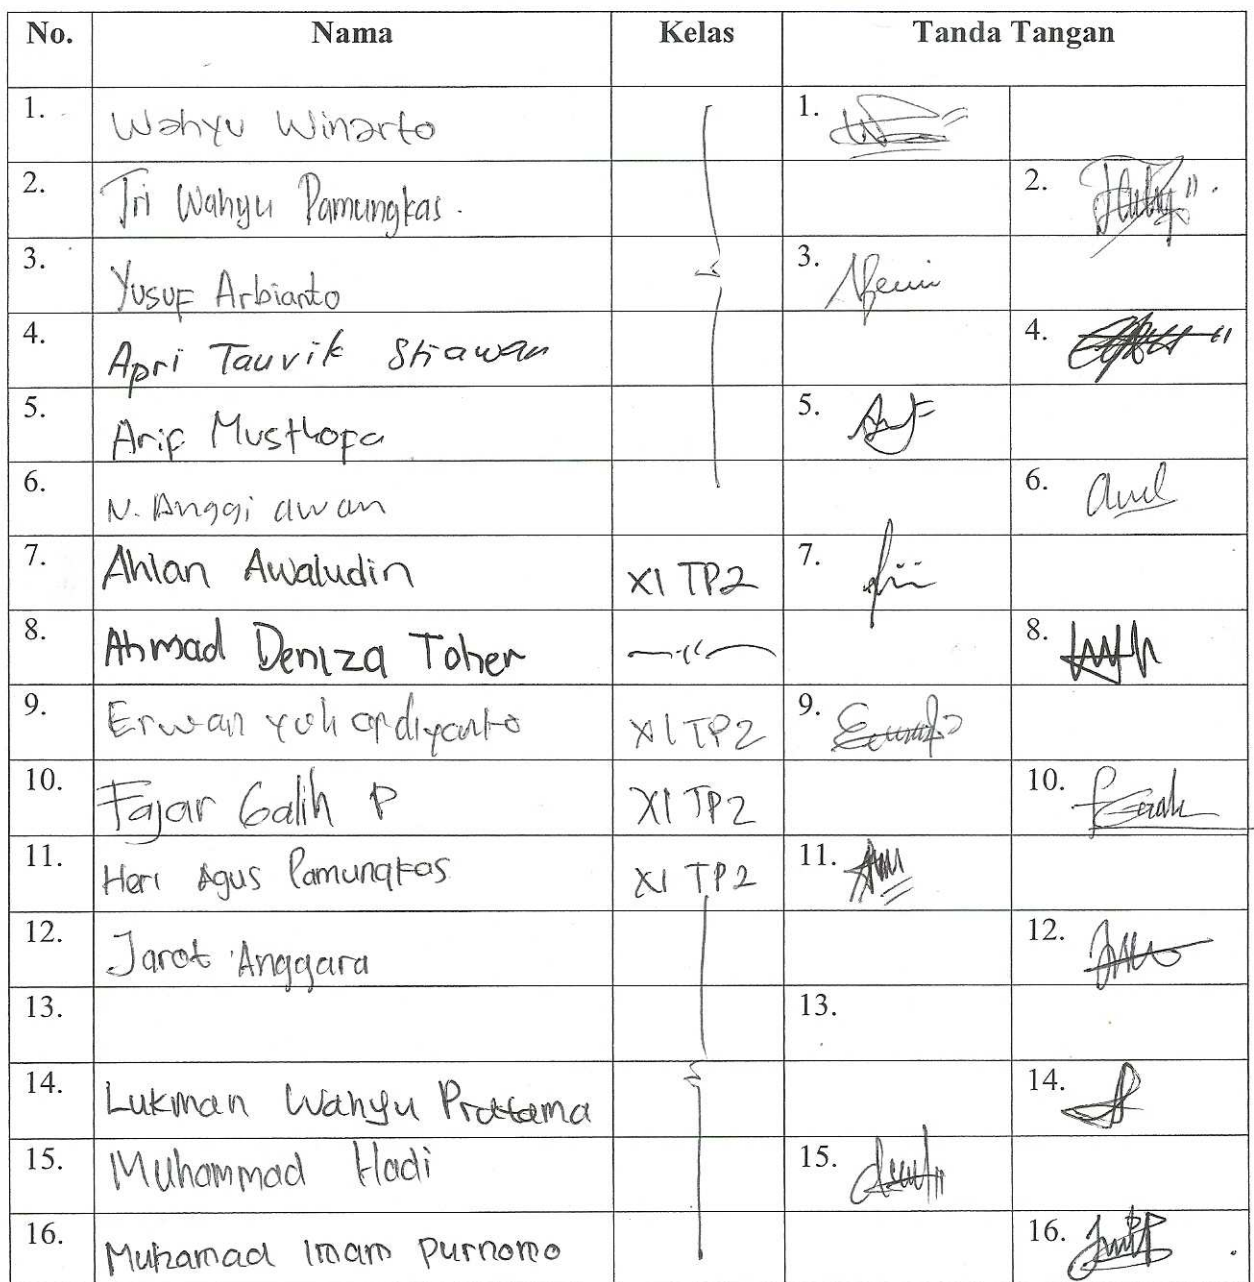 No. Nama Kelas Tanda Tangan
1. Wahyu Winarto 1.
2. Tri Wahyu Pamungkas. 2.
3. Yusuf Arbianto 3.
4. Apri Tauvik Stiawan 4.
5. Arif Musthofa 5.
6. N. Anggi awan 6.
7. Ahlan Awaludin XI TP2 7.
8. Ahmad Deniza Toher 8.
9. Erwan XI TP2 9.
10. Fajar Galih P XI TP2 10.
11. Heri Agus Pamungkas XI TP2 11.
12. Jarot Anggara 12.
13. 13.
14. Lukman Wahyu Pratama 14.
15. Muhammad Hadi 15.
16. Muhamad Imam Purnomo 16.